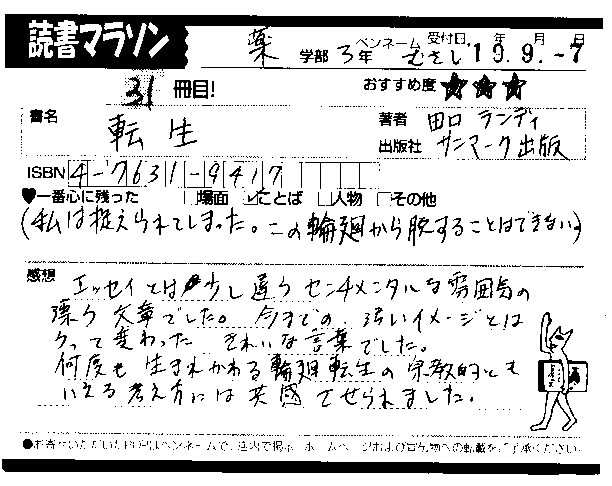 読書マラソン
薬 学部 3年 ペンネーム むさし 受付日 '1 0. 9. -7 年 月 日
31 冊目! おすすめ度 ★★★
書名 転生 著者 田口 ランディ
出版社 サンマーク出版
ISBN 4-7631-9417
♥一番心に残った □場面 ☑ことば □人物 □その他
(私は捉えられてしまった。この輪廻から脱することはできない。)
感想 エッセイとは少し違うセンチメンタルな雰囲気の
漂う文章でした。今までの強いイメージとは
うって変わったきれいな言葉でした。
何度も生まれかわる輪廻転生の宗教的とも
いえる考え方には共感させられました。